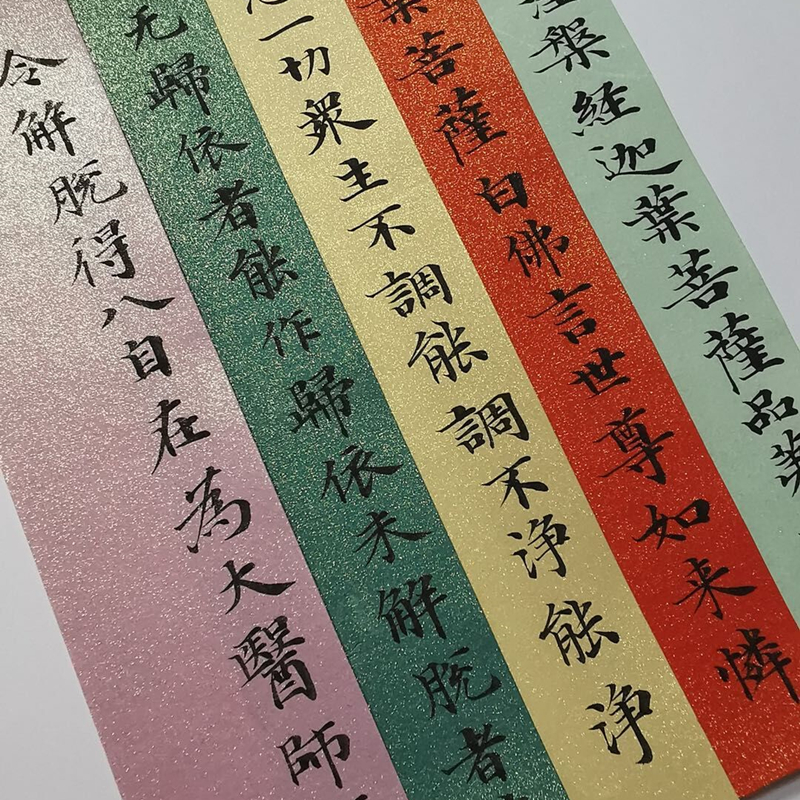 槃経迦葉菩薩品
葉菩薩白佛言世尊如来憐
一切衆生不調能調不浄能浄
无歸依者能作歸依未解脱者
令解脱得八自在為大醫師